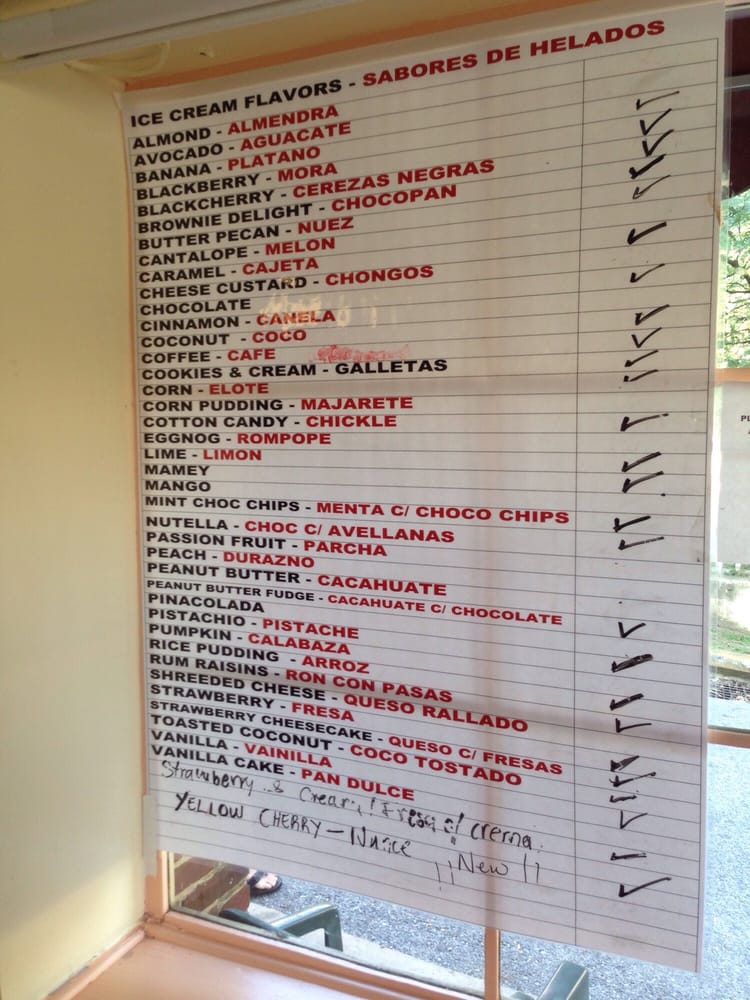 ICE CREAM FLAVORS - SABORES DE HELADOS
ALMOND - ALMENDRA
AVOCADO - AGUACATE
BANANA - PLATANO
BLACKBERRY - MORA
BLACKCHERRY - CEREZAS NEGRAS
BROWNIE DELIGHT - CHOCOPAN
BUTTER PECAN - NUEZ
CANTALOPE - MELON
CARAMEL - CAJETA
CHEESE CUSTARD - CHONGOS
CHOCOLATE
CINNAMON - CANELA
COCONUT - COCO
COFFEE - CAFE
COOKIES & CREAM - GALLETAS
CORN - ELOTE
CORN PUDDING - MAJARETE
COTTON CANDY - CHICKLE
EGGNOG - ROMPOPE
LIME - LIMON
MAMEY
MANGO
MINT CHOC CHIPS - MENTA C/ CHOCO CHIPS
NUTELLA - CHOC C/ AVELLANAS
PASSION FRUIT - PARCHA
PEACH - DURAZNO
PEANUT BUTTER - CACAHUATE
PEANUT BUTTER FUDGE - CACAHUATE C/ CHOCOLATE
PINACOLADA
PISTACHIO - PISTACHE
PUMPKIN - CALABAZA
RICE PUDDING - ARROZ
RUM RAISINS - RON CON PASAS
SHREEDED CHEESE - QUESO RALLADO
STRAWBERRY - FRESA
STRAWBERRY CHEESECAKE - QUESO C/ FRESAS
TOASTED COCONUT - COCO TOSTADO
VANILLA - VAINILLA
VANILLA CAKE - PAN DULCE
Strawberry & Cream
YELLOW CHERRY -
!! New !!